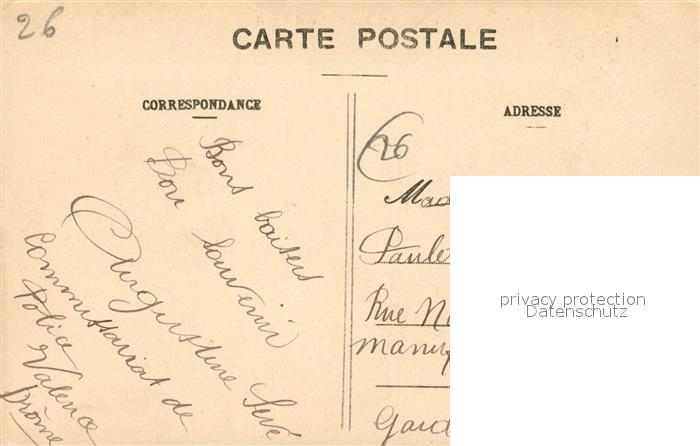 26
CARTE POSTALE
CORRESPONDANCE
ADRESSE
26
Bons baisers
Bon souvenir
Augustine
Commissariat de
Police
Valence
Drôme
Rue
Gard
privacy protection
Datenschutz